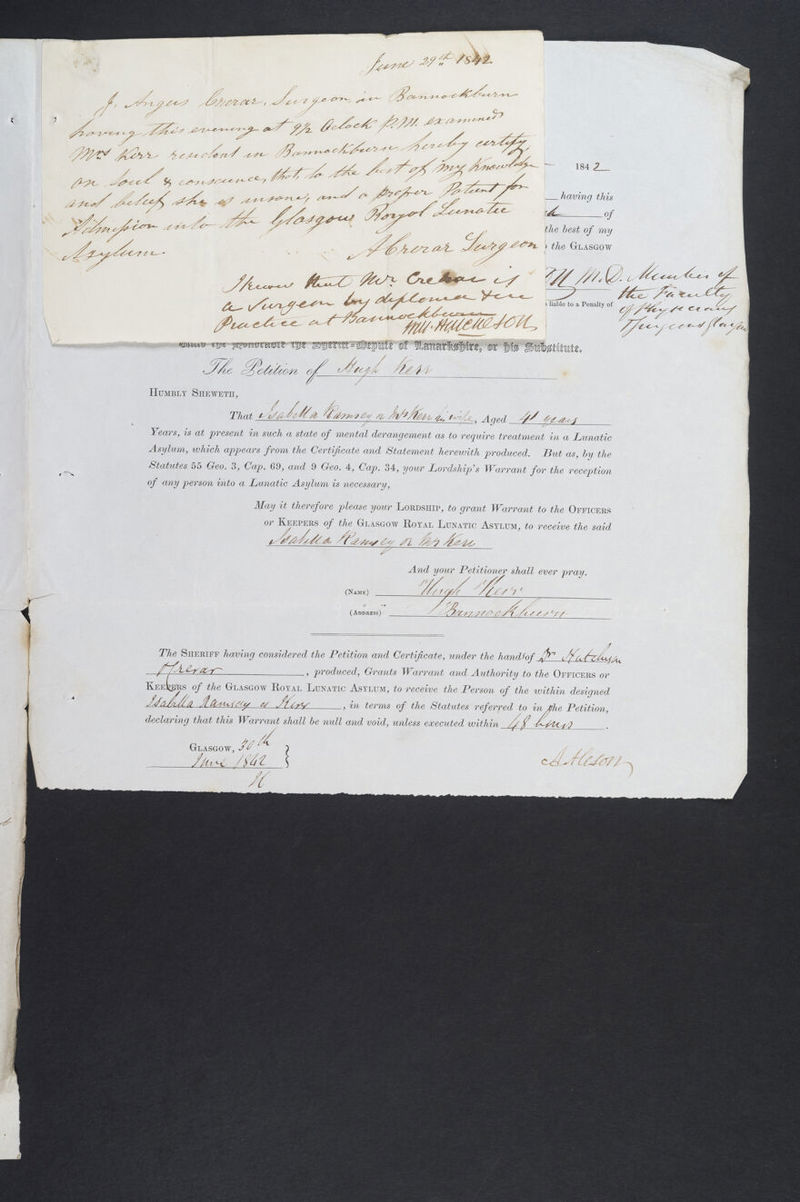 June 29th 1842
I, Angus Crerar, Surgeon in Bannockburn
having this evening at 9½ Oclock P.M. examined
Mrs Kerr resident in Bannockburn hereby certify
on Soul & conscience, that, to the best of my knowledge
and belief she is insane, and a proper Patient for
Admission into the Glasgow Royal Lunatic
Asylum.
A Crerar Surgeon
I know that Mr. Crerar is
a Surgeon by diploma & in
Practice at Bannockburn
184 2
having this
of
the best of my
the GLASGOW
M.D. Member of
the Faculty
of Physicians
liable to a Penalty of
the Honorable the Sheriff-Depute of Lanarkshire, or his Substitute.
The Petition of Hugh Kerr
HUMBLY SHEWETH,
That Isabella Ramsey or Mrs Kerr his wife, Aged 41 years
Years, is at present in such a state of mental derangement as to require treatment in a Lunatic
Asylum, which appears from the Certificate and Statement herewith produced. But as, by the
Statutes 55 Geo. 3, Cap. 69, and 9 Geo. 4, Cap. 34, your Lordship's Warrant for the reception
of any person into a Lunatic Asylum is necessary,
May it therefore please your LORDSHIP, to grant Warrant to the OFFICERS
or KEEPERS of the GLASGOW ROYAL LUNATIC ASYLUM, to receive the said
Isabella Ramsey or Mrs Kerr
And your Petitioner shall ever pray.
(NAME) Hugh Kerr
(ADDRESS) Bannockburn
The SHERIFF having considered the Petition and Certificate, under the hand of Dr Hutchison
& Crerar, produced, Grants Warrant and Authority to the OFFICERS or
KEEPERS of the GLASGOW ROYAL LUNATIC ASYLUM, to receive the Person of the within designed
Isabella Ramsay or Kerr, in terms of the Statutes referred to in the Petition,
declaring that this Warrant shall be null and void, unless executed within 48 hours.
GLASGOW, 30th
June 1842
A Alison